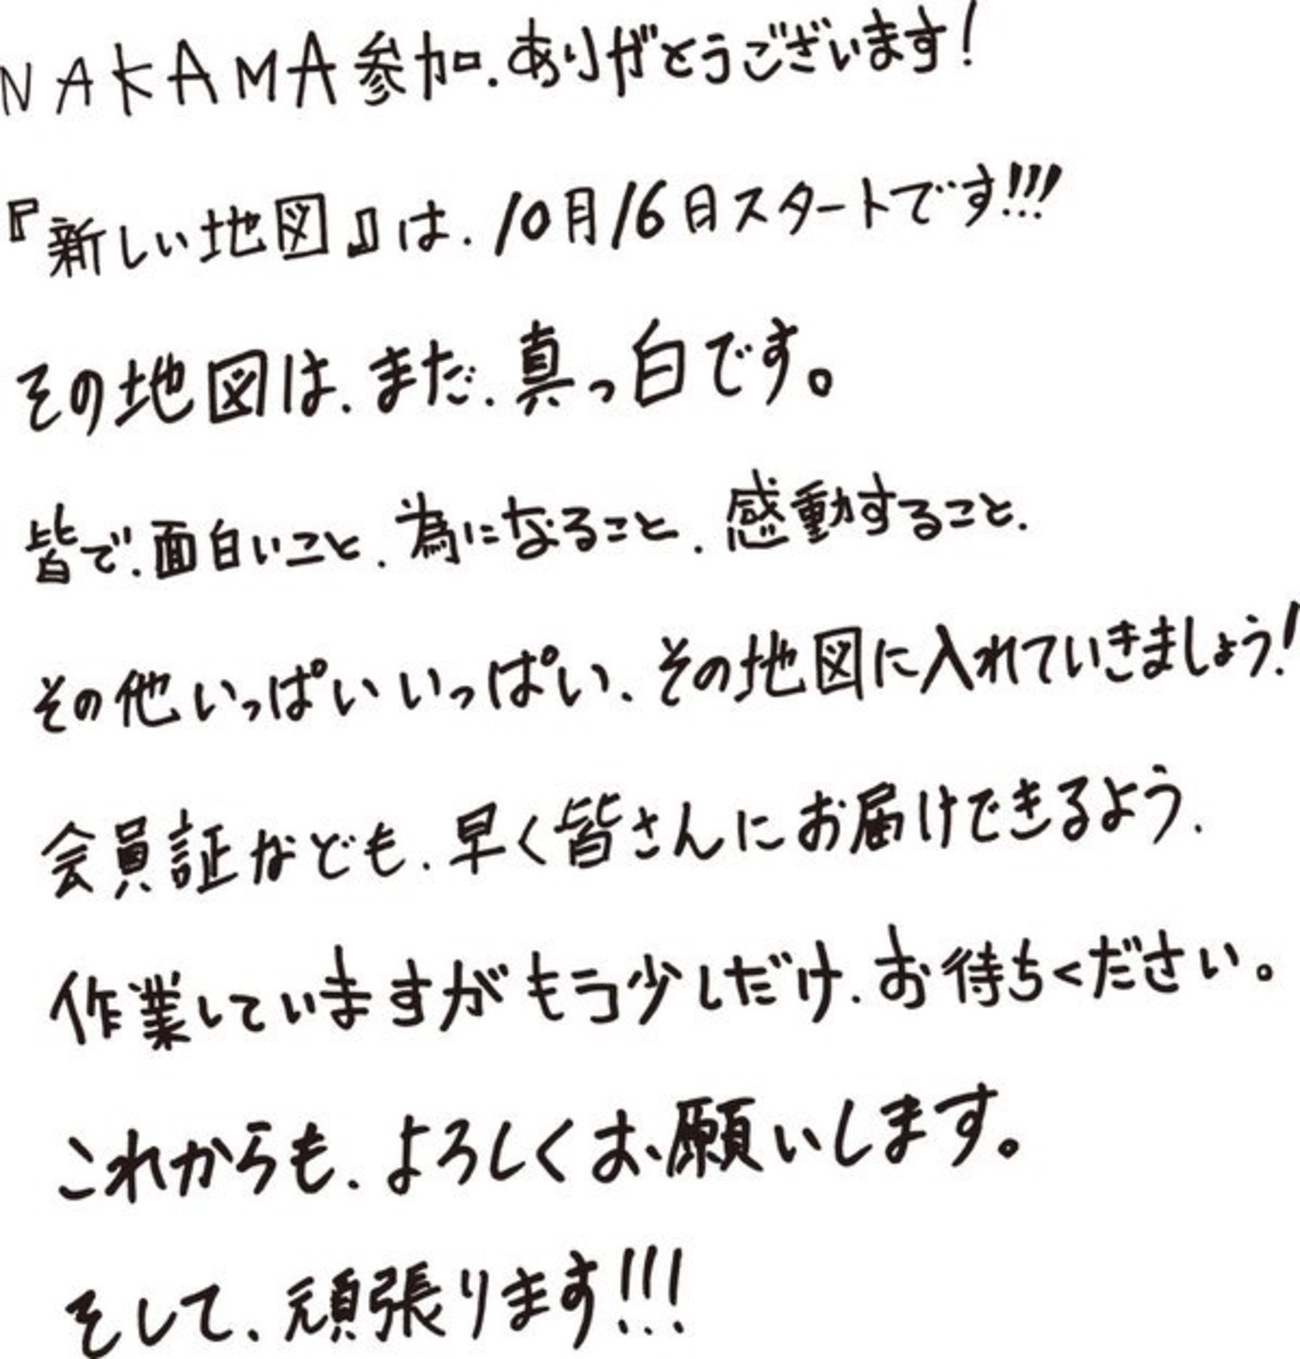 NAKAMA参加、ありがとうございます!
『新しい地図』は、10月16日スタートです!!!
その地図は、まだ、真っ白です。
皆で、面白いこと、為になること、感動すること、
その他いっぱいいっぱい、その地図に入れていきましょう!
会員証なども、早く皆さんにお届けできるよう、
作業していますがもう少しだけ、お待ちください。
これからも、よろしくお願いします。
そして、頑張ります!!!